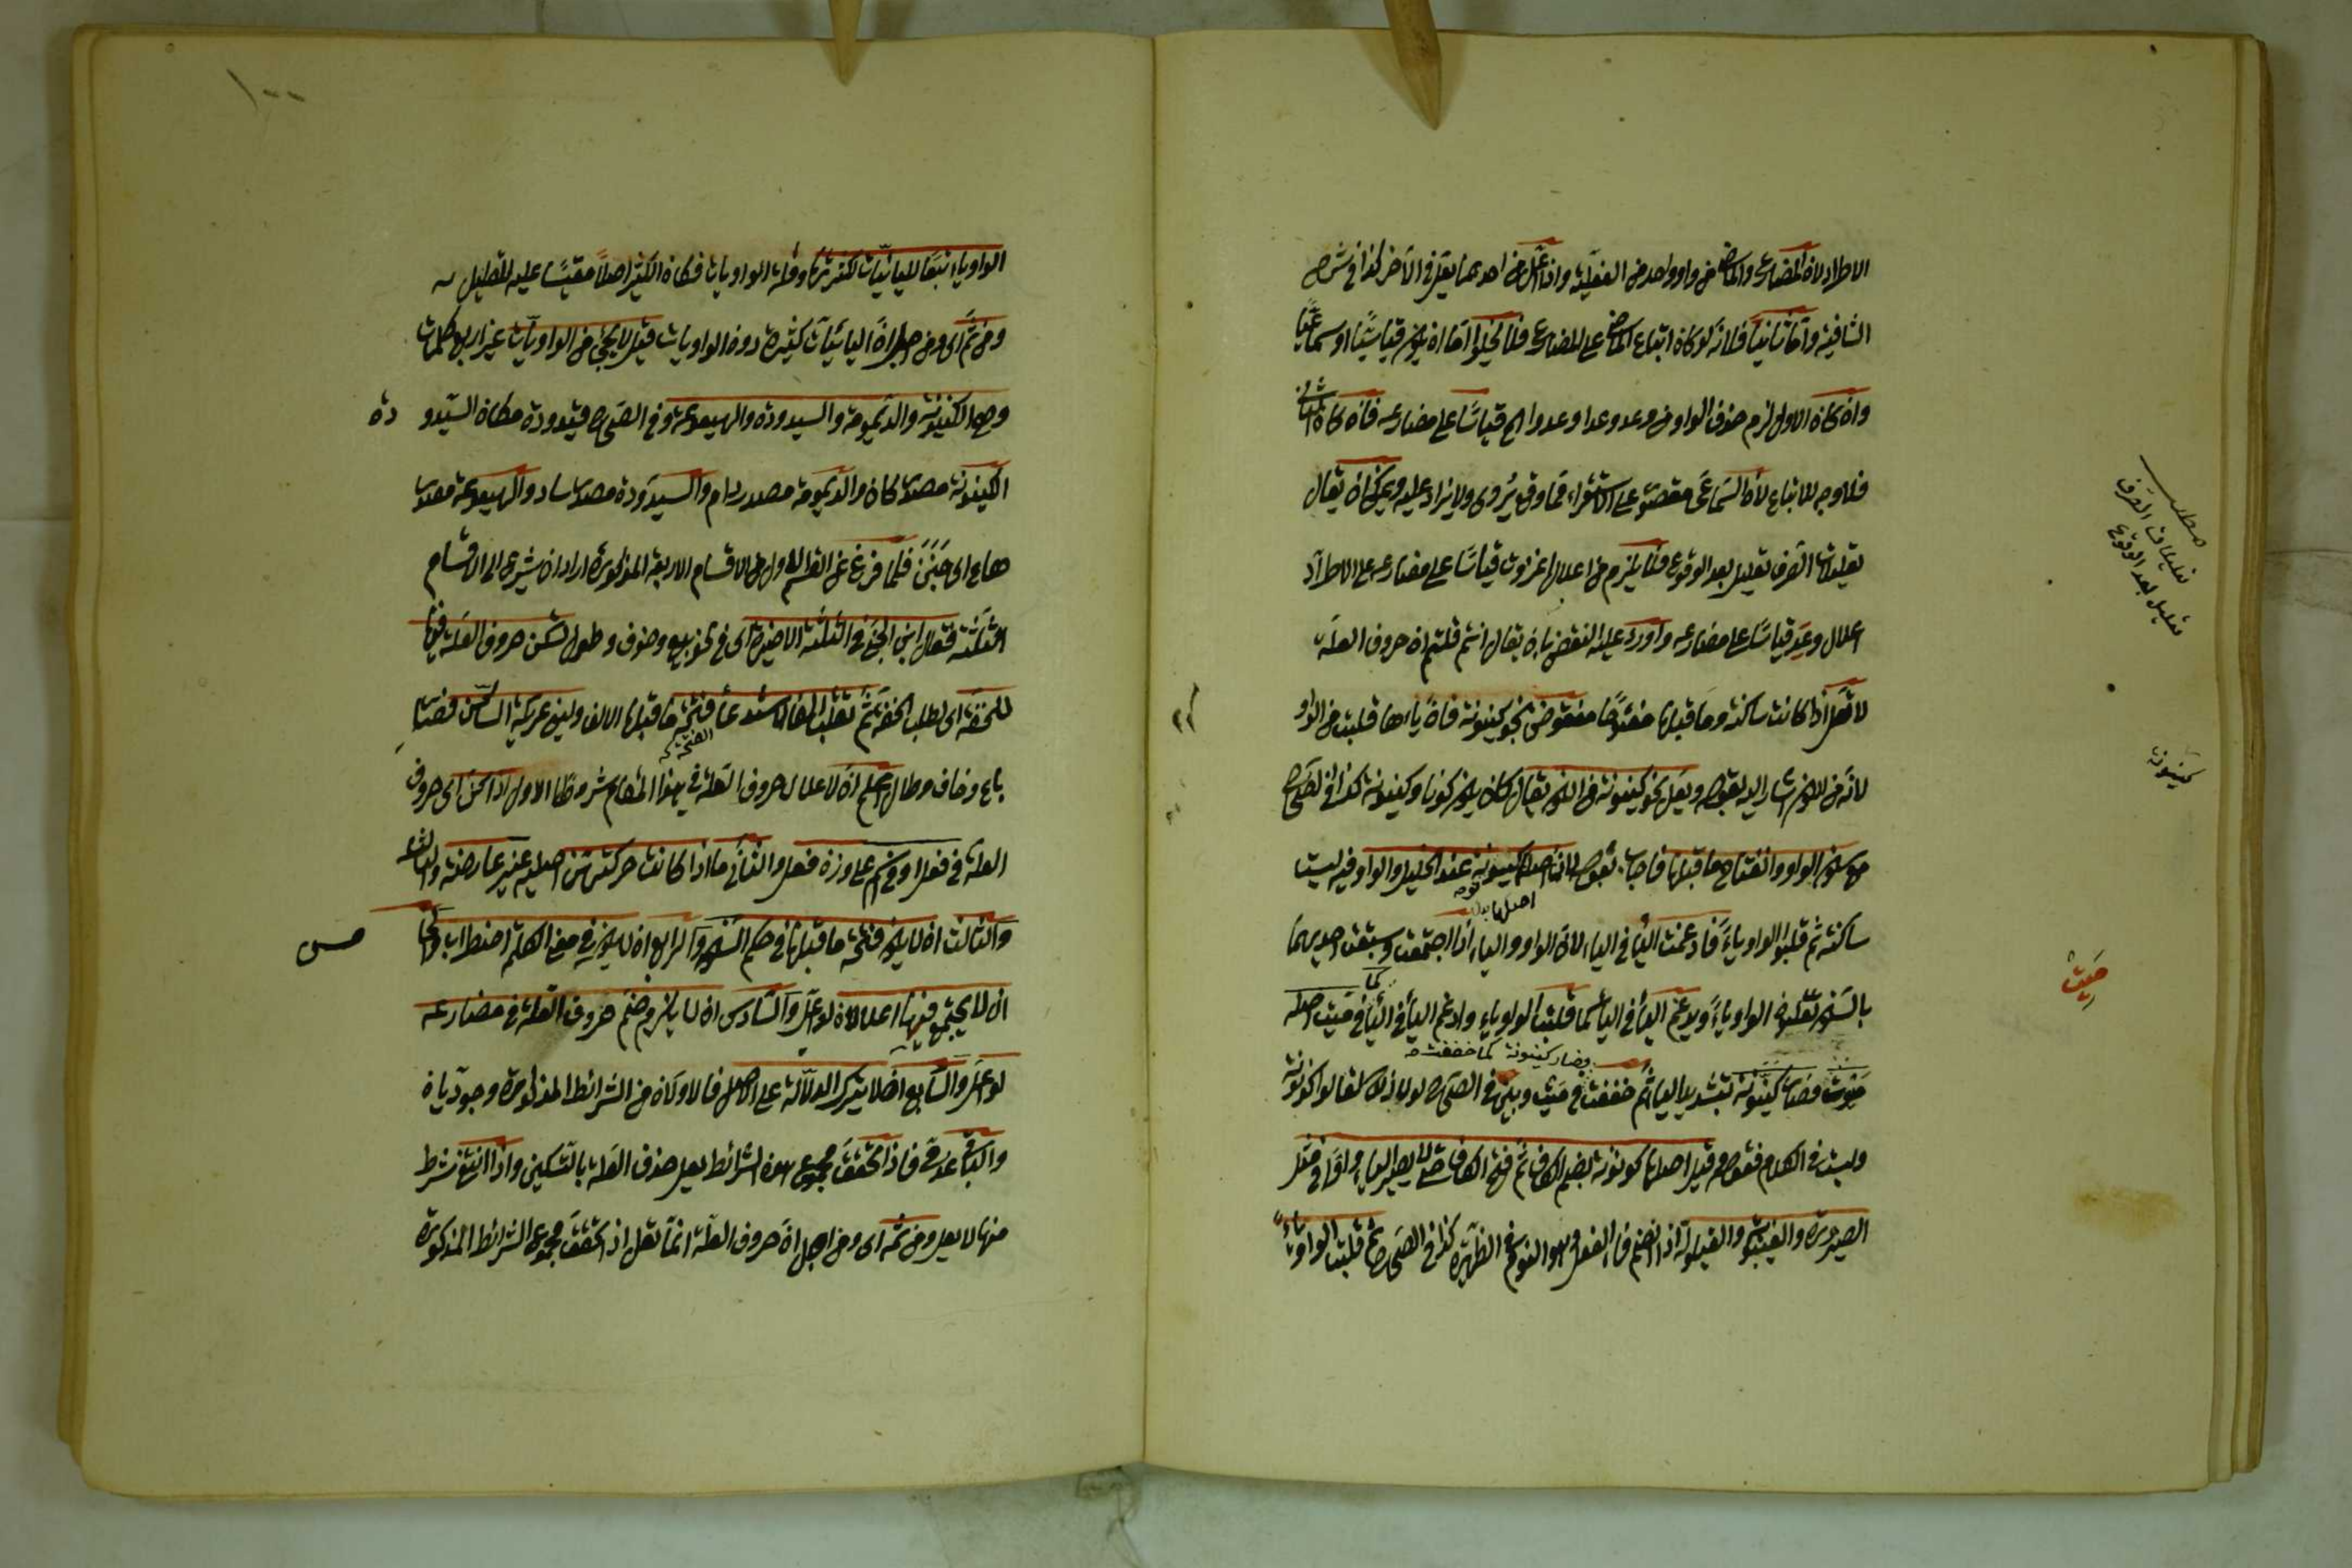 الاطراد لان المضارع والماضى من واد واحد من الفعلية واذا اعل من احدهما يعل فى الآخر كذا فى شرح
الشافية واما ثانيا فلانه لو كان اتباع الماضى على المضارع فلا يخلوا اما ان يكون قياسيا او سماعيا
وان كان الاول لزم حذف الواو من وعد وعدا وعدوا الخ قياسا على مضارعه فان كان الثانى
فلا وجه للاتباع لان السماعى مقصور على الاستقراء فما وقع يُروى ولا يزاد عليه ويمكن ان يقال
تعليلات الصرف تعليل بعد الوقوع فلا يلزم من اعلال غزوت قياسا على مضارعه على الاطراد
اعلال وعد قياسا على مضارعه واورد عليه النقض بان يقال انتم قلتم ان حروف العلة
لا تعل اذا كانت ساكنة وما قبلها مفتوحا منقوض بنحو كينونة فان ياءها قلبت من الواو
لانه من الكون اشار اليه بقوله ويعل نحو كينونة من الكون يقال كان يكون كونا وكينونة كذا فى الصحاح
مع سكون الواو وانفتاح ما قبلها فاجاب بقوله لان اصله كيونونة عند الخليل والواو فيه ليست
ساكنة ثم قلبوا الواو ياء فادغمت الياء فى الياء لان الواو والياء اذا اجتمعت وسبقت احديهما
بالسكون تقلبون الواو ياء ويدغم الياء فى الياء كما قلبت الواو ياء وادغم الياء فى الياء فى ميت اصله
ميوت فصار كينونة بتشديد الياء ثم خففت فى ميت وبين فى الصحاح لولا ذلك لقالوا كونونة
وليست فى الكلام فعلول وقيل اصلها كونونة بضم الكاف ثم فتح الكاف حتى لا يصير الياء واوا فى مثل
الصيرورة والغيبوبة والقيلولة اذا انضم فاء الفعل وهو النوم فى الظهيرة كذا فى الصحاح ثم قلبت الواو ياء
مطلب
تعليلات الصرف
تعليل بعد الوقوع
كينونة
ميت
اصلها
وصار كينونة كما خففت
١٠٠
الواو ياء تبعا لليائيات لكثرتها وقلة الواويات فكان الكثير اصلا مقيسا عليه للقليل
ومن ثم اى ومن اجل ان اليائيات كثيرة دون الواويات قيل لا يجئ من الواويات غير اربع كلمات
وهى الكينونة والديمومة والسيدودة والهيعوعة وفى الصحاح قيدودة مكان السيدو دة
الكينونة مصدر كان والديمومة مصدر دام والسيدودة مصدر ساد والهيعوعة مصدر
هاع اى جبن فلما فرغ عن القسم الاول من الاقسام الاربعة المذكورة اراد ان يشرع الى الاقسام
الثلثة فقال ابن الجنى فى الثلثة الاخيرة اى فى نحو بيع وخوف وطول تسكن حروف العلة فيها
للخفة اى لطلب الخفة ثم تقلب الفا لاستدعاء فتحة ما قبلها الالف ولين عريكة الساكن فصار
باع وخاف وطال اعلم ان لاعلال حروف العلة فى هذا المقام شروطا الاول اذا كن اى حروف
العلة فى فعل او فى اسم على وزن فعل والثانى ما اذا كانت حركتهن اصلية غير عارضة والثالث
والثالث ان لا يكون فتحة ما قبلها فى حكم السكون والرابع ان لا يكون فى معنى الكلمة اضطراب والخا مس
ان لا يجتمع فيها اعلالان لو اعل والسادس ان لا يلزم ضم حروف العلة فى مضارعه
لو اعل والسابع ان لا يترك الدلالة على الاصل فالاولان من الشرائط المذكورة وجوديان
والباقى عدمى فاذا تحقق مجموع هذه الشرائط يعل حذف العلة بالتسكين واذا انتفى شرط
منها لا يعل ومن ثمه اى ومن اجل ان حروف العلة انما تعل اذا تحقق مجموع الشرائط المذكورة